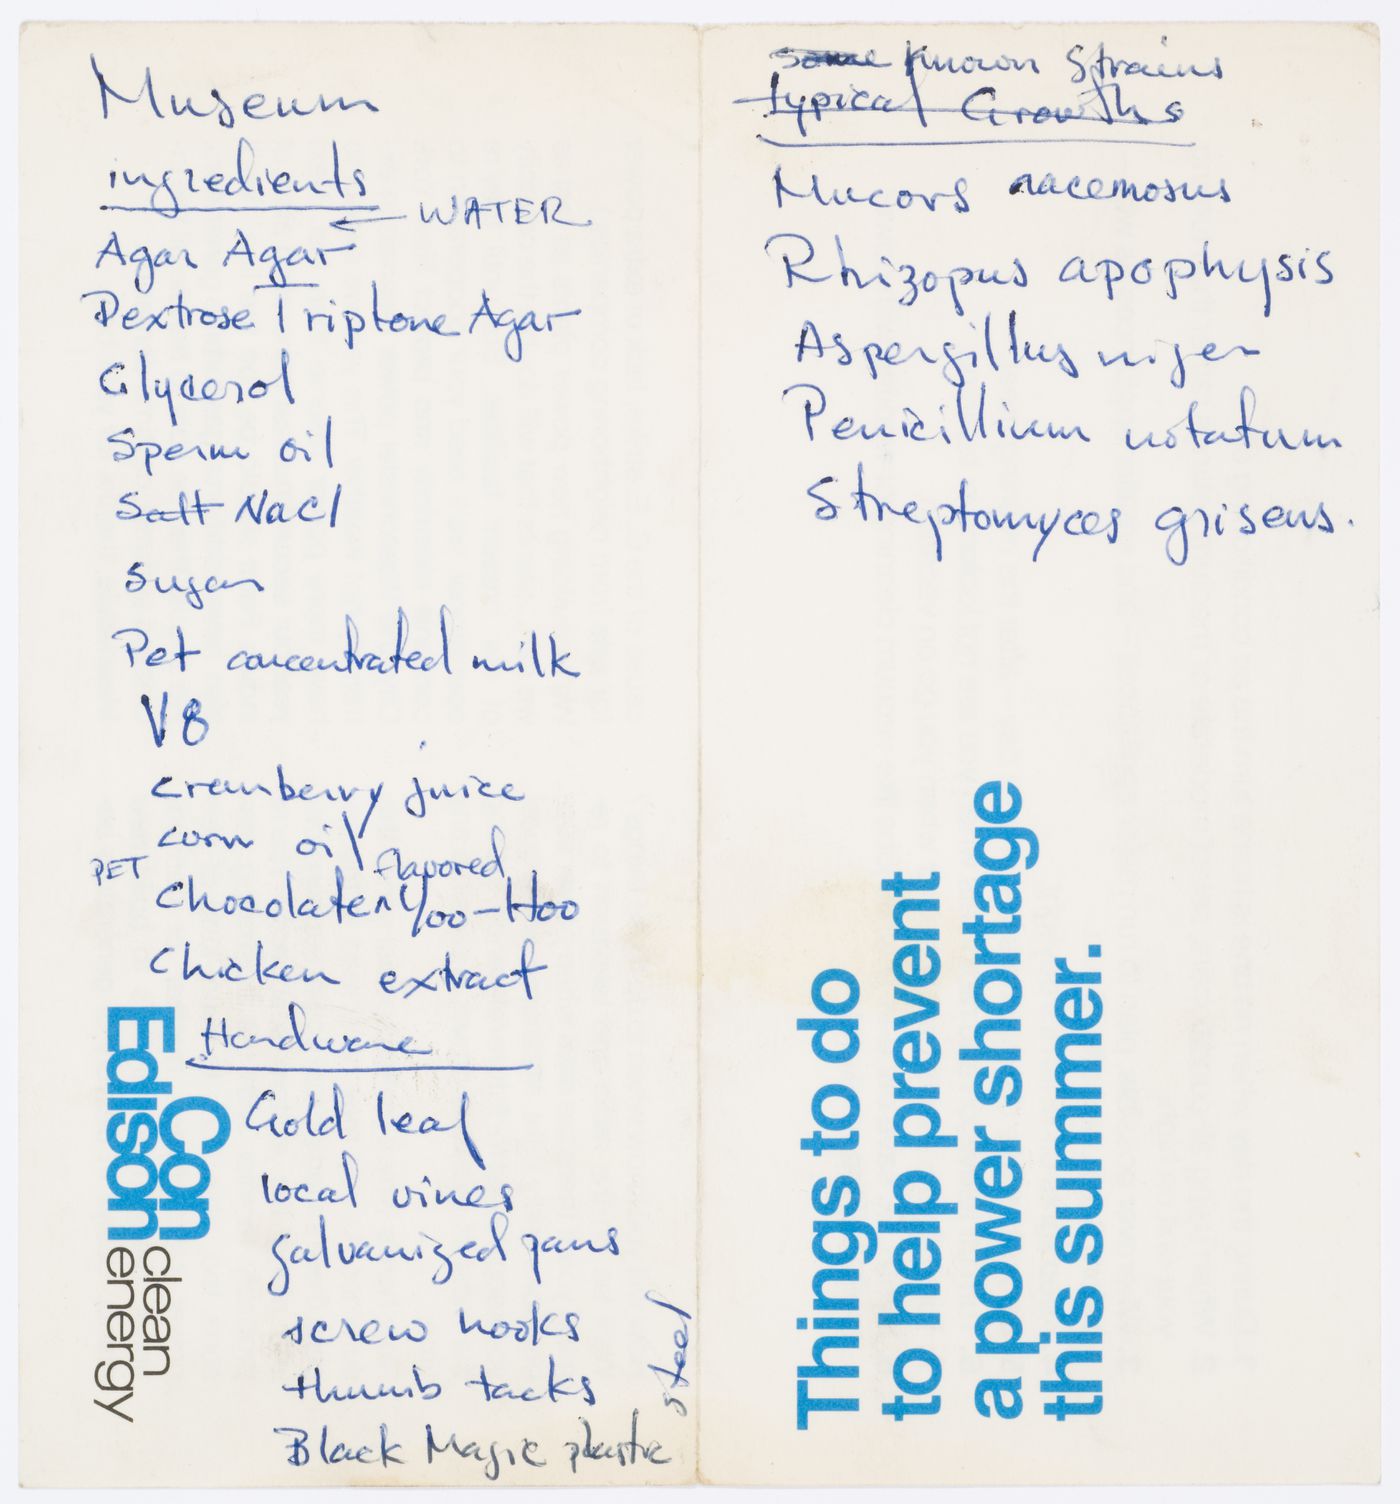 Museum
ingredients
← WATER
Agar Agar
Dextrose Triptone Agar
Glycerol
Sperm oil
Salt NaCl
Sugar
Pet concentrated milk
V8
cranberry juice
corn oil
PET
flavored
Chocolate ^ Yoo-Hoo
Chicken extract
Hardware
Gold leaf
local vines
galvanized pans
screw hooks
thumb tacks
steel
Black Magic plastic
Con
Edison
clean
energy
some Known Strains
typical Growths
Mucors racemosus
Rhizopus apophysis
Aspergillus niger
Penicillium notatum
Streptomyces griseus.
Things to do
to help prevent
a power shortage
this summer.